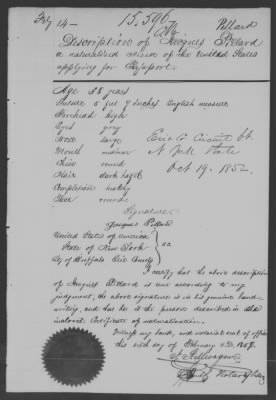 Feby 14 -
15,596
Pillard
Description of Jacques Pillard
a naturalized citizen of the United States
applying for Passport.
Age 38 years
Stature 5 feet 9 inches English measure
Forehead high
Eyes gray
Nose large
Mouth medium
Chin round
Hair dark hazel
Complexion healthy
Face round
Erie Co Circuit Ct.
N. York State
Oct 19. 1852
Signature
Jacques Pillard
United States of America
State of New York } ss
City of Buffalo Erie County
I certify that the above description
of Jacques Pillard is true according to my
judgment, the above signature is in his genuine hand
writing, and that he is the person described in the
inclosed Certificate of naturalization.
Witness my hand, and notarial seal of office
this 10th day of February A.D. 1857.
Notary Public